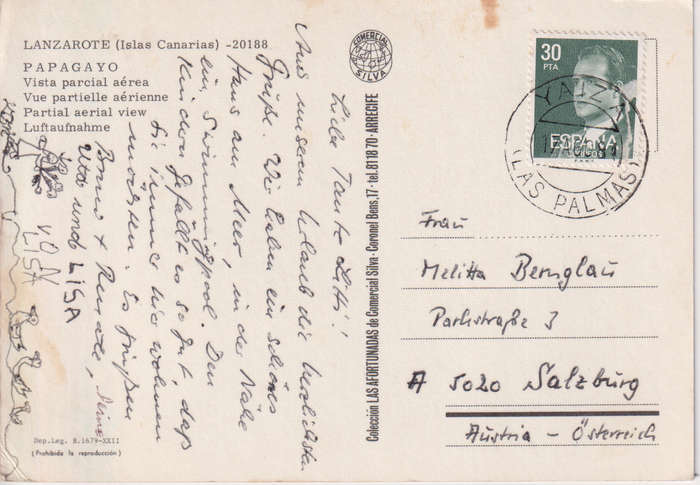 LANZAROTE (Islas Canarias) -20188
PAPAGAYO
Vista parcial aérea
Vue partielle aérienne
Partial aerial view
Luftaufnahme
Liebe Tante Litti!
Aus unserem Urlaub die herzlichsten
Grüße. Wir haben ein schönes
Haus am Meer, in der Nähe
ein Swimmingpool. Den
Kindern gefällt es so gut, daß
sie immer hier wohnen
möchten. Es grüßen
Bruno + Renate,
Uta und LISA
VON
LISA
Dep. Leg. B. 1679-XXII
(Prohibida la reproducción)
COMERCIAL
SILVA
Colección LAS AFORTUNADAS de Comercial Silva - Coronel Bens, 17 - tel. 81 18 70 - ARRECIFE
30
PTA
ESPAÑA
CORREOS
YAIZA
(LAS PALMAS)
Frau
Melitta Bernglau
Parkstraße 3
A 5020 Salzburg
Austria - Österreich